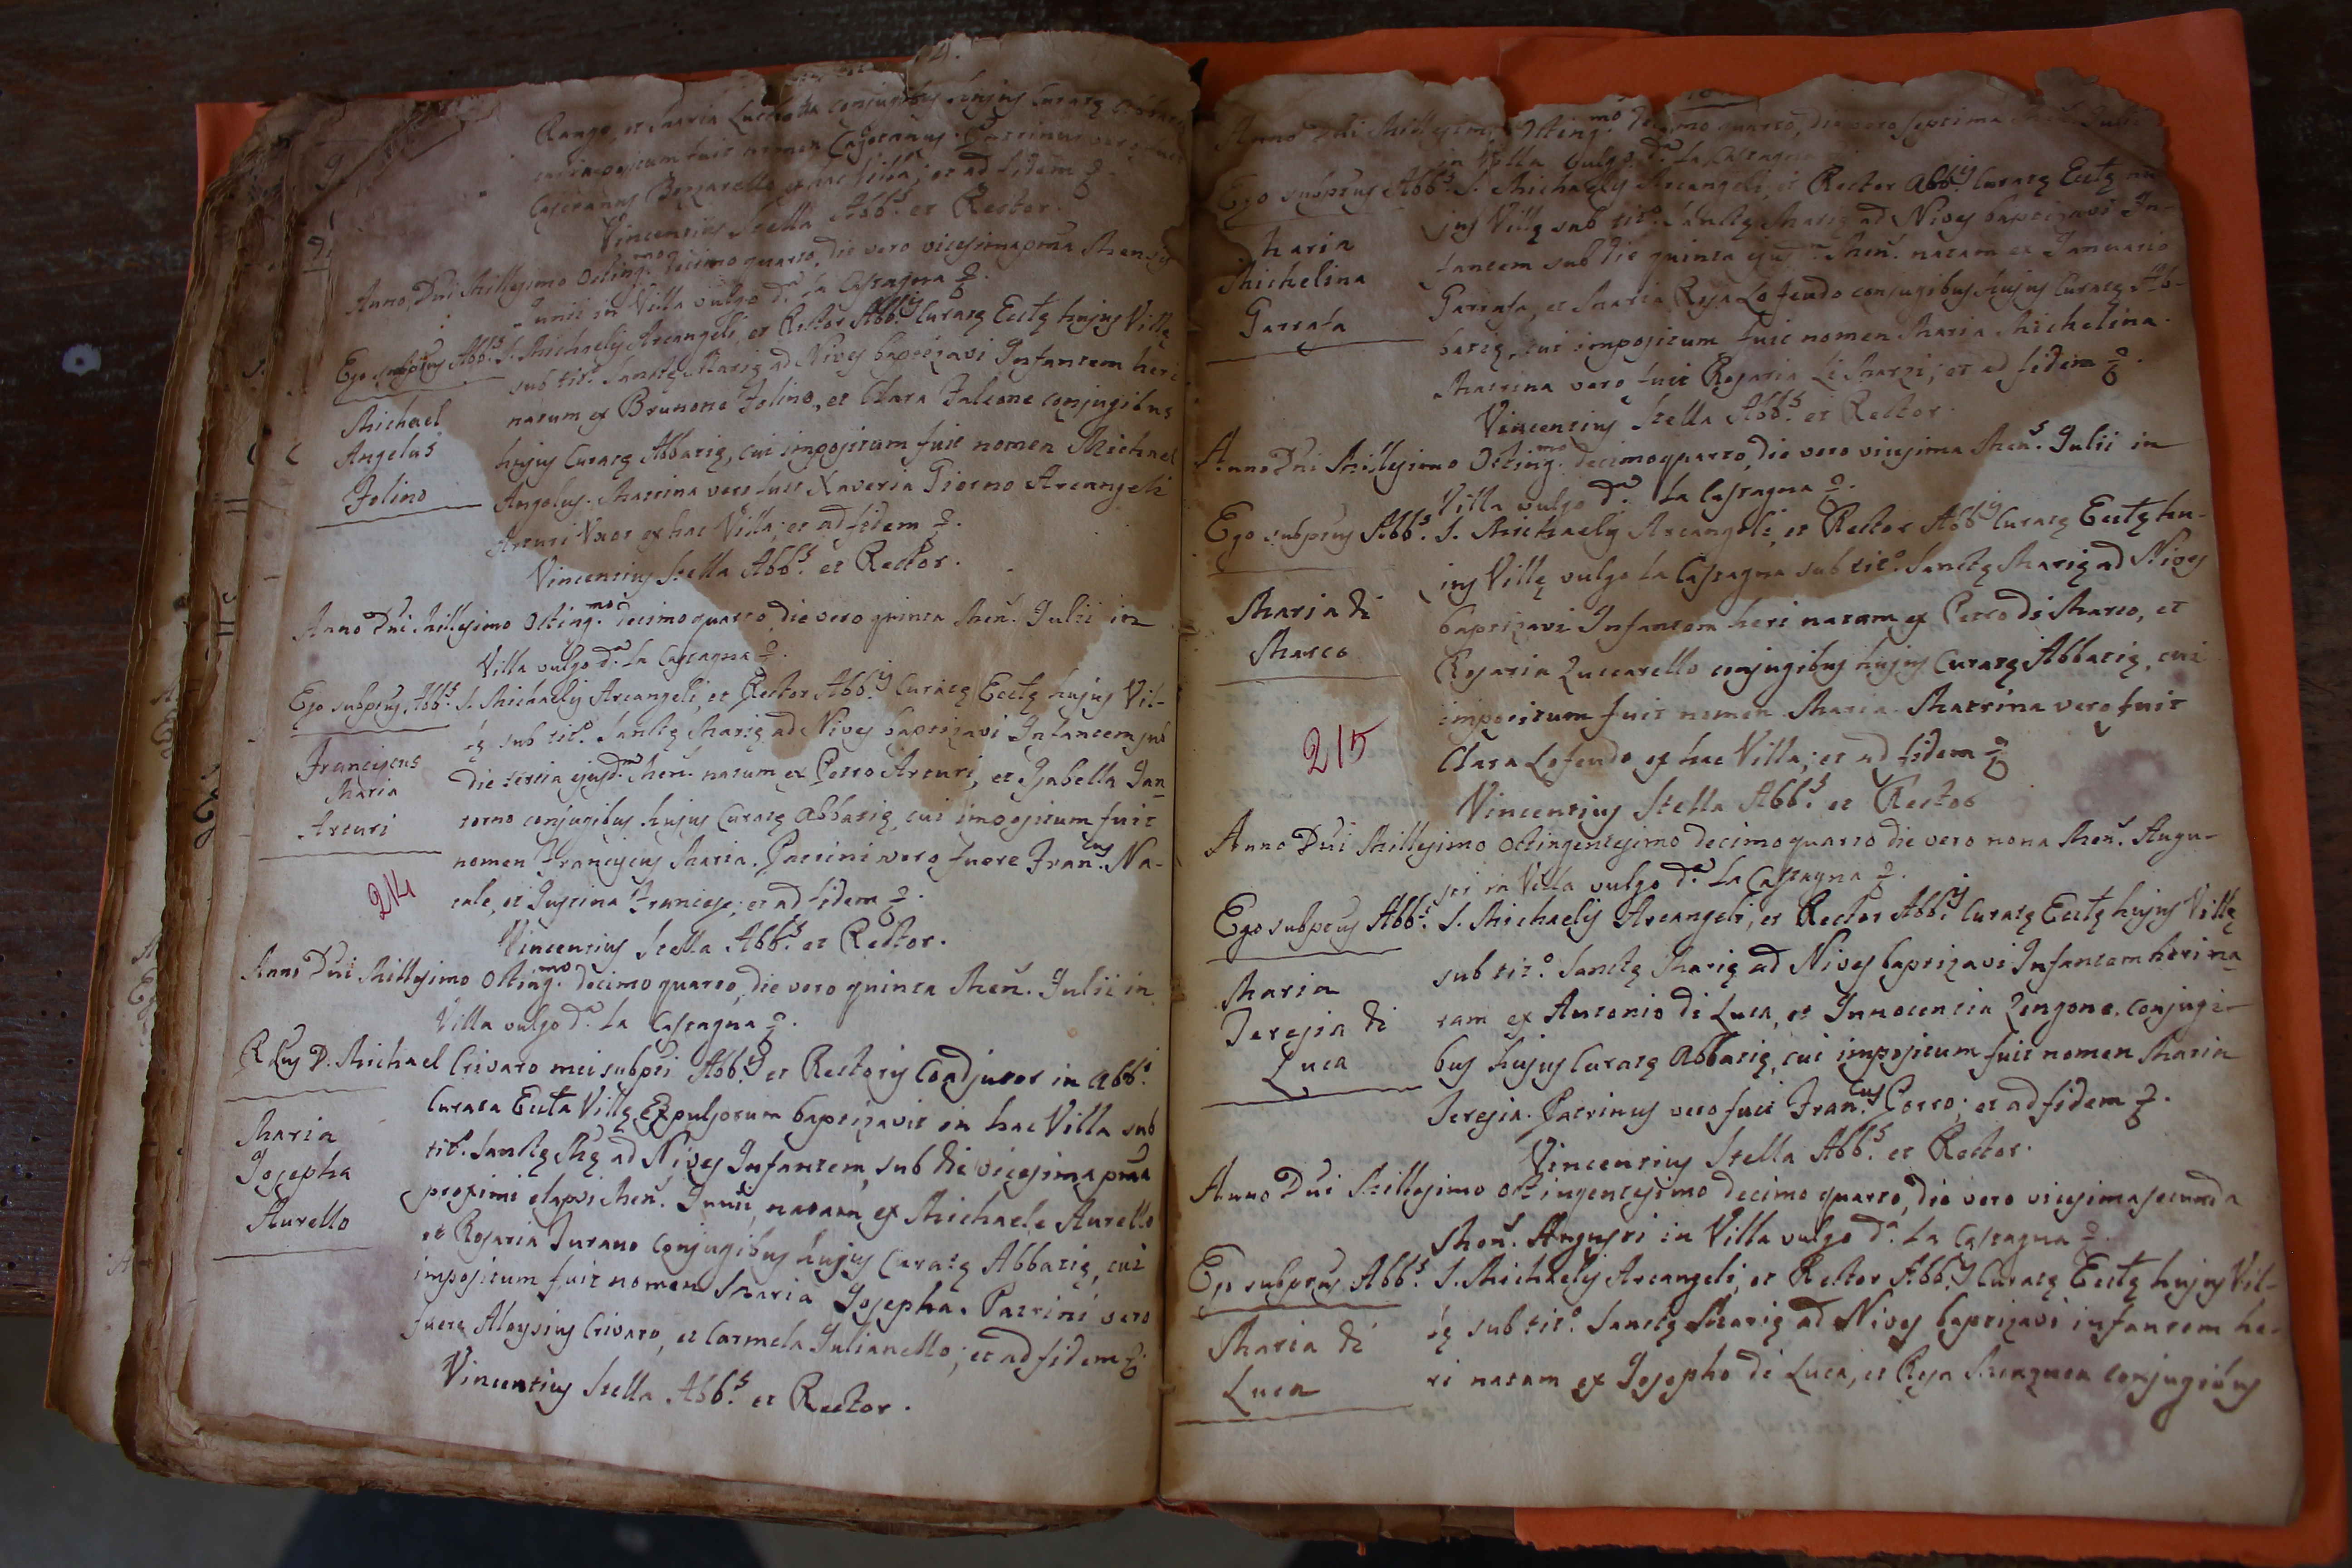 Rango, et Maria Lucchetta conjugibus hujus Curatę
cui impositum fuit nomen Cajetanus. Patrinus vero fuit
Cajetanus ex hac Villa; et ad fidem &.
Vincentius Stella Abb.s et Rector.
Anno Dni Millesimo Octing.mo decimo quarto, die vero vicesimaprma Mensis
Junii in Villa vulgo d.a La Castagna &.
Ego subptus Abb.s S. Michaelis Arcangeli, et Rector Abb.is Curatę Ecctę hujus Villę
sub tit.o Sanctę Marię ad Nives baptizavi Infantem heri
Michael
Angelus
Folino
natum ex Brunone Folino, et Clara Falcone conjugibus
hujus Curatę Abbatię, cui impositum fuit nomen Michael
Angelus. Matrina vero fuit Xaveria Giorno Arcangeli
Arturi Uxor ex hac Villa; et ad fidem &.
Vincentius Stella Abb.s et Rector.
Anno Dni Millesimo Octing.mo decimo quarto, die vero quinta Men. Julii in
Villa vulgo d.a La Castagna &.
Ego subptus Abb.s S. Michaelis Arcangeli, et Rector Abb.is Curatę Ecctę hujus Vil-
lę sub tit.o Sanctę Marię ad Nives baptizavi Infantem sub
Franciscus
Maria
Arturi
die tertia ejusd.m Men. natum ex Petro Arturi, et Isabella Jan_
torno conjugibus hujus Curatę abbatię, cui impositum fuit
nomen Franciscus Maria. Patrini vero fuere Fran.cus Na-
tale, et Justina Francese; et ad fidem &.
214
Vincentius Stella Abb.s et Rector.
Anno Dni Millesimo Octing.mo decimo quarto, die vero quinta Men. Julii in
Villa vulgo d.a La Castagna &.
R.dus D. Michael Crivaro mei subpti Abb.is et Rectoris Coadjutor in abb.i
Curata Eccta Villę Expulsorum baptizavit in hac Villa sub
Maria
Josepha
Aurello
tit.o Sanctę Mę ad Nives Infantem, sub die vicesima prma
proximi elapsi Men. Junii, natam ex Michaele Aurello
et Rosaria Furano Conjugibus hujus Curatę Abbatię, cui
impositum fuit nomen Maria Josepha. Patrini vero
fuere Aloysius Crivaro, et Carmela Julianello; et ad fidem &
Vincentius Stella Abb.s et Rector.
Anno Dni Millesimo Octing.mo decimo quarto, die vero septima Men. Julii
in Villa vulgo d.a La Castagna
Ego subptus Abb.s S. Michaelis Arcangeli, et Rector Abb.is Curatę Ecctę hu
jus Villę sub tit.o Sanctę Marię ad Nives baptizavi In-
Maria
Michelina
Garrafa
fantem sub die quinta ejusd.m Men. natam ex Januario
Garrafa, et Maria Rosa Lofeudo conjugibus hujus Curatę Ab-
batię, cui impositum fuit nomen Maria Michelina.
Matrina vero fuit Rosaria Li Marzi; et ad fidem &.
Vincentius Stella Abb.s et Rector.
Anno Dni Millesimo Octing.mo decimoquarto, die vero vicesima Men.s Julii in
Villa vulgo d.a La Castagna &.
Ego subptus Abb.s S. Michaelis Arcangeli, et Rector Abb.is Curatę Ecctę hu-
jus Villę vulgo La Castagna sub tit.o Sanctę Marię ad Nives
Maria di
Marco
baptizavi Infantem heri natam ex Petro di Marco, et
Rosaria Luccarello conjugibus hujus Curatę Abbatię, cui
impositum fuit nomen Maria. Matrina vero fuit
Clara Lofeudo ex hac Villa; et ad fidem &
215
Vincentius Stella Abb.s et Rector
Anno Dni Millesimo Octingentesimo decimo quarto die vero nona Men. Augu-
sti in Villa vulgo d.a La Castagna &.
Ego subptus Abb.s S. Michaelis Arcangeli, et Rector Abb.is Curatę Ecctę hujus Villę
sub tit.o Sanctę Marię ad Nives baptizavi Infantem heri na_
Maria
Teresia di
Luca
tam ex Antonio di Luca, et Innocentia Zingone conjugi-
bus hujus Curatę Abbatię, cui impositum fuit nomen Maria
Teresia. Patrinus vero fuit Fran.cus Corro; et ad fidem &.
Vincentius Stella Abb.s et Rector.
Anno Dni Millesimo octingentesimo decimo quarto, die vero vicesimasecunda
Men. Augusti in Villa vulgo d.a La Castagna &.
Ego subptus Abb.s S. Michaelis Arcangeli, et Rector Abb.is Curatę Ecctę hujus Vil-
lę sub tit.o Sanctę Marię ad Nives baptizavi infantem he-
Maria di
Luca
ri natam ex Josepho di Luca, et Rosa conjugibus